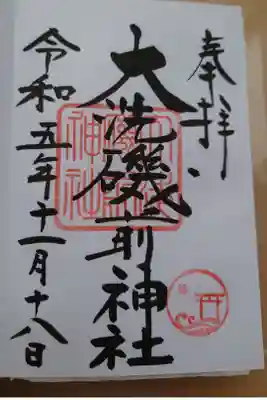 奉拝
大洗磯前神社
令和五年十一月十八日